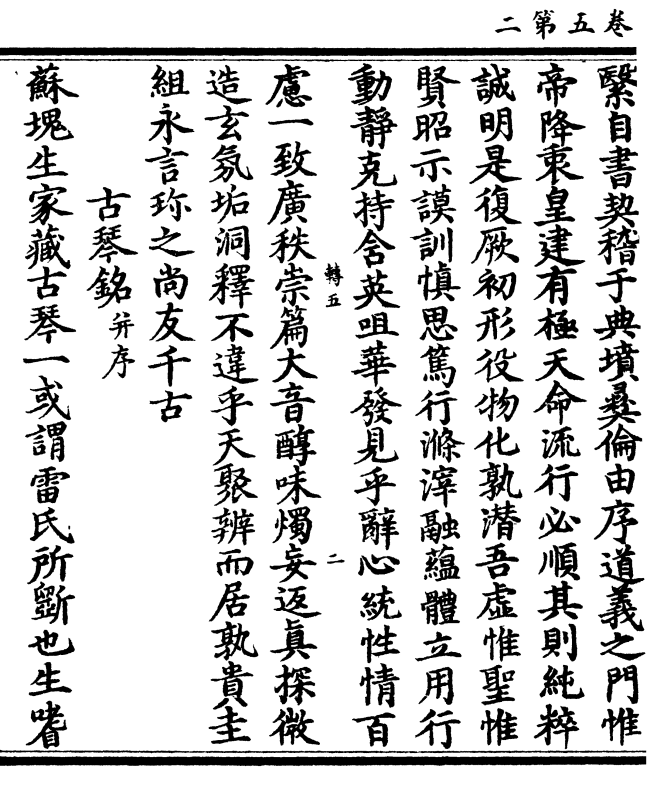 卷五第二
繄自書契稽于典墳彝倫由序道義之門惟
帝降衷皇建有極天命流行必順其則純粹
誠明是復厥初形役物化孰潛吾虛惟聖惟
賢昭示謨訓慎思篤行滌滓融蘊體立用行
動靜克持含英咀華發見乎辭心統性情百
轉五
二
慮一致廣秩崇篇大音醇味燭妄返真探微
造玄氛垢洞釋不違乎天聚辨而居孰貴圭
組永言珎之尚友千古
古琴銘并序
蘇塊生家藏古琴一或謂雷氏所斵也生嗜